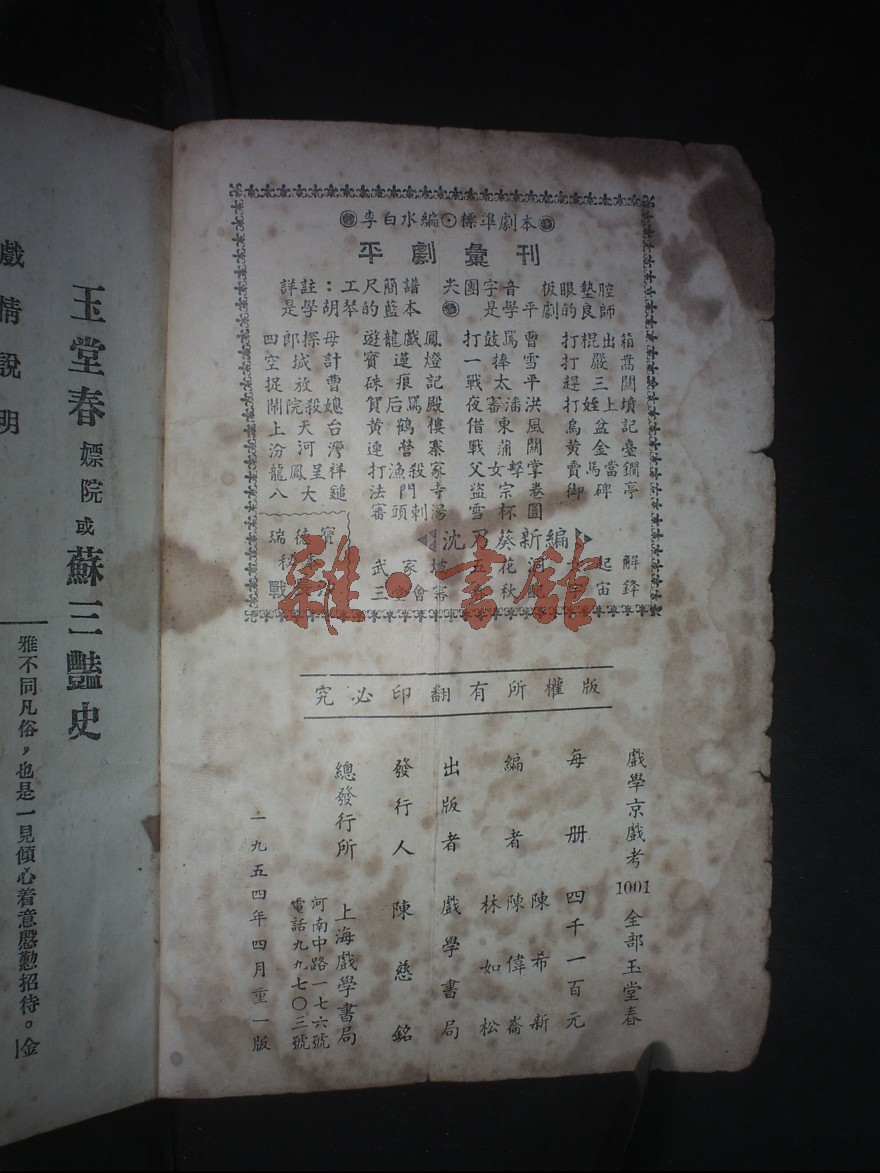 李白水編・標準劇本
平劇彙刊
詳註：工尺簡譜
是學胡琴的藍本
尖團字音 板眼墊腔
是學平劇的良師
四郎探母
空城計
捉放曹
鬧院殺媳
上天台
汾河灣
龍鳳呈祥
八大鎚
遊龍戲鳳
寶蓮燈
硃痕記
賀后罵殿
黃鶴樓
連營寨
打漁殺家
法門寺
審頭刺湯
打鼓罵曹
一捧雪
戰太平
夜審潘洪
借東風
戰蒲關
父女擊掌
盜宗卷
打棍出箱
打嚴嵩
趕三關
打姪上墳
烏盆記
黃金臺
賣馬當鐧
御碑亭
沈乃葵新編
版權所有翻印必究
戲學京戲考 1001 全部玉堂春
每册 四千一百元
編者 陳希新
陳偉崙
林如松
出版者 戲學書局
發行人 陳慈銘
總發行所 上海戲學書局
河南中路一七六號
電話九九七〇三號
一九五四年四月重一版
雜・書館
戲情說明
玉堂春 嫖院 或 蘇三豔史
雅不同凡俗，也是一見傾心着意慇懃招待。金